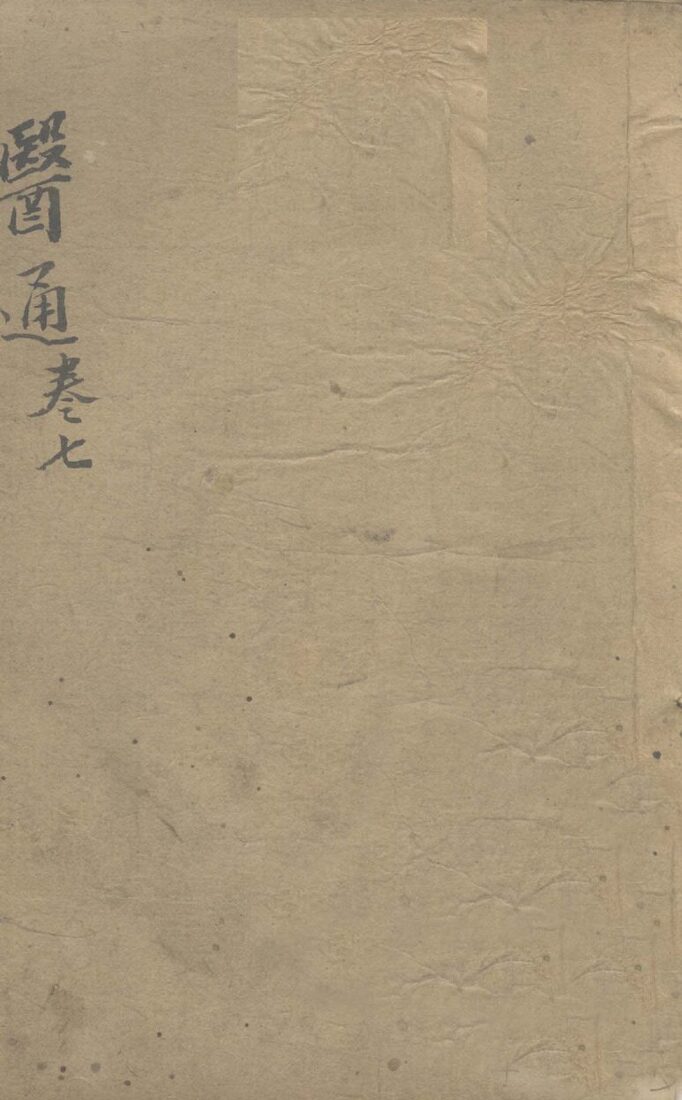 醫通卷七